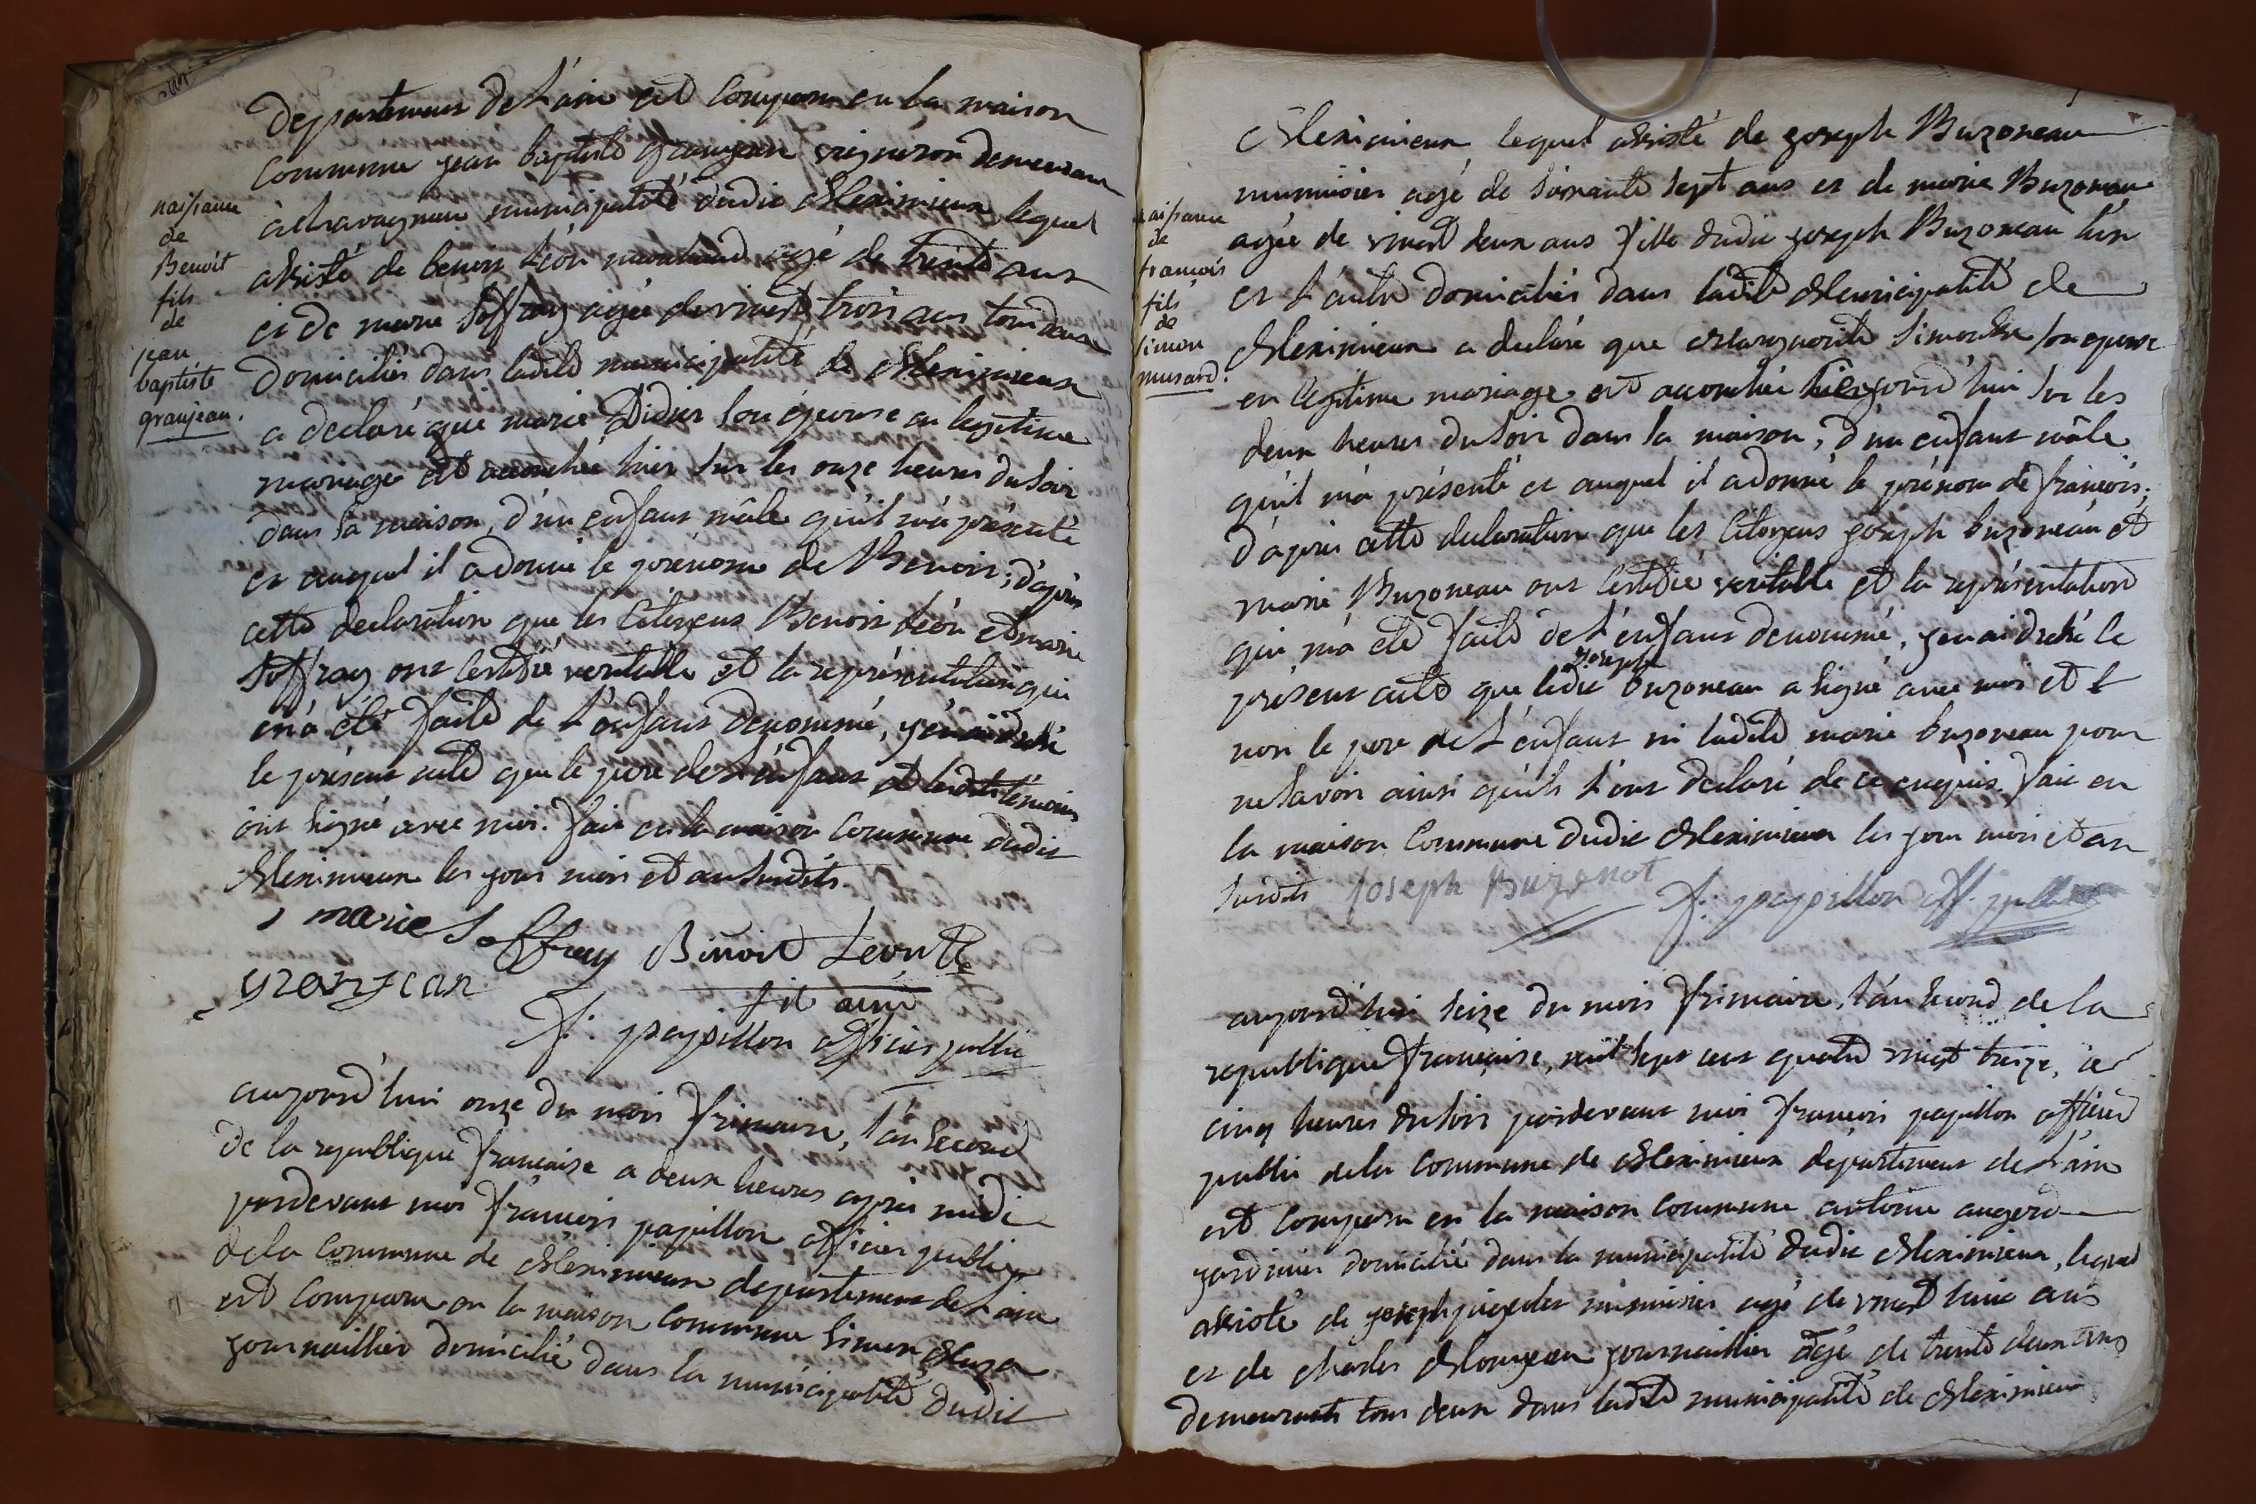 departement de L'ain est Comparu en la maison
Commune jean baptiste granjean vigneron demeurant
à chavagnieu municipalité dudit Meximieux lequel
assisté de benoit Léon marchand agé de trente ans
et de marie Soffray agée de vingt trois ans tous deux
domiciliés dans ladite municipalité de Meximieux
a declaré que marie Didier son épouse en legitime
mariage est accouchée hier sur les onze heures du soir
dans sa maison, d'un enfant mâle qu'il m'a présenté
et auquel il a donné le prénom de Benoit; d'après
cette declaration que les Citoyens Benoit Léon et marie
Soffray ont Certifié veritable et la représentation qui
m'a été faite de L'enfant denommé, j'en ai dressé
le présent acte que le pere de L'enfant et lesdits témoins
ont signé avec moi. fait en la maison Commune dudit
Meximieux les jour mois et an susdits.
marie Soffray Benoit Leon
granjean
fils ainé
f: papillon officier public
naissance
de
Benoit
fils
de
jean
baptiste
granjean.
aujourd'hui onze du mois frimaire, l'an second
de la republique française a deux heures après midi
pardevant moi françois papillon officier public
de la Commune de Meximieux departement de L'ain
est Comparu en la maison Commune Simon Musa
journaillier domicilié dans la municipalité dudit
Meximieux lequel assisté de joseph Buzoneau
agé de soixante sept ans et de marie Buzoneau
agée de vingt deux ans fille dudit joseph Buzoneau l'un
et L'autre domiciliés dans ladite Municipalité de
Meximieux a declaré que Marguerite Simonde son epouse
en legitime mariage est accouchée hier jourd'hui sur les
deux heures du soir dans sa maison, d'un enfant mâle
qu'il m'a présenté et auquel il a donné le prénom de françois;
d'après cette declaration que les Citoyens joseph buzoneau et
marie Buzoneau ont Certifié veritable et la représentation
qui m'a été faite de L'enfant denommé, j'en ai dressé le
présent acte que ledit joseph buzoneau a signé avec moi et
non le pere de L'enfant ni ladite marie buzoneau pour
ne savoir ainsi qu'ils l'ont declaré de ce enquis. fait en
la maison Commune dudit Meximieux les jour mois et an
susdits Joseph Buzonot f: papillon off. public
naissance
de
françois
fils
de
simon
musard.
aujourd'hui seize du mois frimaire, l'an second de la
republique française, mil sept cent quatre vingt treize, à
cinq heures du soir pardevant moi françois papillon officier
public de la Commune de Meximieux departement de L'ain
est Comparu en la maison Commune antoine augerd
jardinier domicilié dans la municipalité dudit Meximieux, lequel
assisté de joseph agé de vingt huit ans
et de charles Monjean journaillier agé de trente deux ans
demeurants tous deux dans ladite municipalité de Meximieux